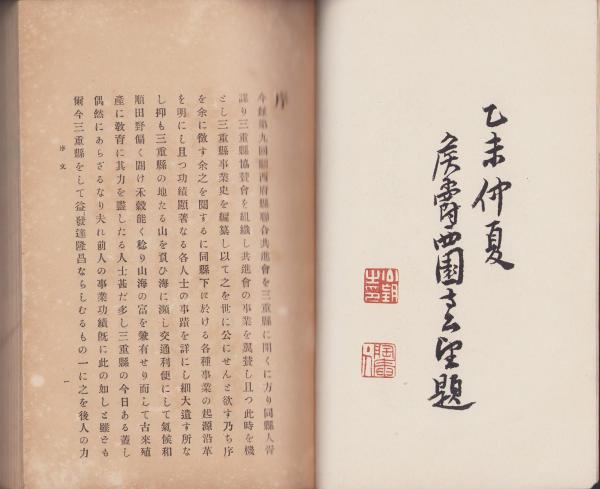 乙未仲夏
侯爵西園寺公望題
序
今玆第九回關西府縣聯合共進會を三重縣に開くに方り同縣人胥
謀り三重縣協賛會を組織し共進會の事業を翼賛し且つ此時を機
とし三重縣事業史を編纂し以て之を世に公にせんと欲す乃ち序
を余に徴す余之を閲するに同縣下に於ける各種事業の起源沿革
を明にし且つ功績顯著なる各人士の事蹟を詳にし細大遺す所な
し抑も三重縣の地たる山を負ひ海に瀕し交通利便にして氣候和
順田野偏く闢け禾穀能く稔り山海の富を兼有せり而して古來殖
產に敎育に其力を盡したる人士甚だ多し三重縣の今日ある蓋し
偶然にあらざるなり夫れ前人の事業功績旣に此の如しと雖も
爾今三重縣をして益發達隆昌ならしむるもの一に之を後人の力
序文
一